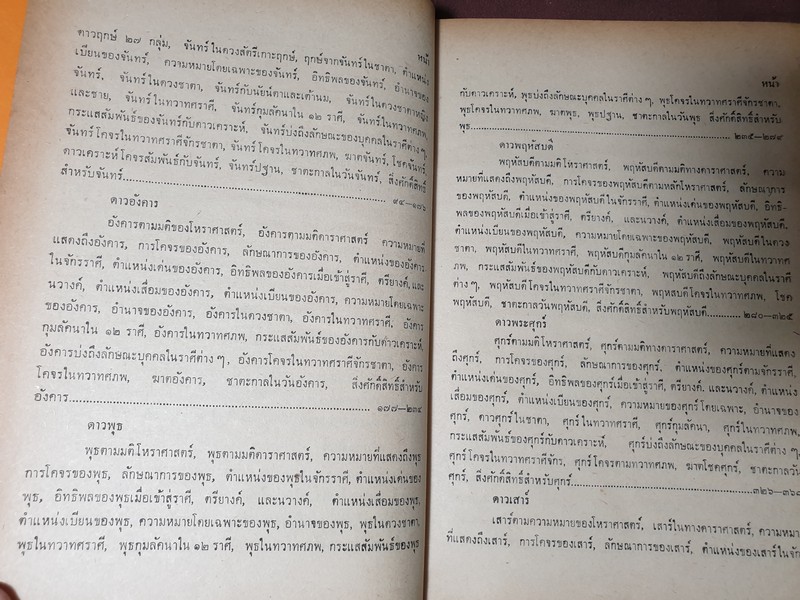 หน้า
ดาวฤกษ์ ๒๗ กลุ่ม, จันทร์ในดวงสัตรีเกาะฤกษ์, ฤกษ์จากจันทร์ในชาตา, ตำแหน่ง
เบียนของจันทร์, ความหมายโดยเฉพาะของจันทร์, อิทธิพลของจันทร์, อำนาจของ
จันทร์, จันทร์ในดวงชาตา, จันทร์กับนัยน์ตาและเต้านม, จันทร์ในดวงชาตาหญิง
และชาย, จันทร์ในทวาทศราศี, จันทร์กุมลัคนาใน ๑๒ ราศี, จันทร์ในทวาทศภพ,
กระแสสัมพันธ์ของจันทร์กับดาวเคราะห์, จันทร์บ่งถึงลักษณะของบุคคลในราศีต่างๆ,
จันทร์โคจรในทวาทศราศีจักรชาตา, จันทร์โคจรในทวาทศภพ, ฆาตจันทร์, โชคจันทร์,
ดาวเคราะห์โคจรสัมพันธ์กับจันทร์, จันทร์ปฐาน, ชาตะกาลในวันจันทร์, สิ่งศักดิ์สิทธิ์
สำหรับจันทร์........................ ๙๔—๑๗๖
ดาวอังคาร
อังคารตามมติของโหราศาสตร์, อังคารตามมติดาราศาสตร์ ความหมายที่
แสดงถึงอังคาร, การโคจรของอังคาร, ลักษณาการของอังคาร, ตำแหน่งของอังคาร
ในจักรราศี, ตำแหน่งเด่นของอังคาร, อิทธิพลของอังคารเมื่อเข้าสู่ราศี, ตรียางค์, และ
นวางค์, ตำแหน่งเสื่อมของอังคาร, ตำแหน่งเบียนของอังคาร, ความหมายโดยเฉพาะ
ของอังคาร, อำนาจของอังคาร, อังคารในดวงชาตา, อังคารในทวาทศราศี, อังคาร
กุมลัคนาใน ๑๒ ราศี, อังคารในทวาทศภพ, กระแสสัมพันธ์ของอังคารกับดาวเคราะห์,
อังคารบ่งถึงลักษณะบุคคลในราศีต่าง ๆ, อังคารโคจรในทวาทศราศีจักรชาตา, อังคาร
โคจรในทวาทศภพ, ฆาตอังคาร, ชาตะกาลในวันอังคาร, สิ่งศักดิ์สิทธิ์สำหรับ
อังคาร........................ ๑๗๗—๒๓๔
ดาวพุธ
พุธตามมติโหราศาสตร์, พุธตามมติดาราศาสตร์, ความหมายที่แสดงถึงพุธ
การโคจรของพุธ, ลักษณาการของพุธ, ตำแหน่งของพุธในจักรราศี, ตำแหน่งเด่นของ
พุธ, อิทธิพลของพุธเมื่อเข้าสู่ราศี, ตรียางค์, และนวางค์, ตำแหน่งเสื่อมของพุธ,
ตำแหน่งเบียนของพุธ, ความหมายโดยเฉพาะของพุธ, อำนาจของพุธ, พุธในดวงชาตา,
พุธในทวาทศราศี, พุธกุมลัคนาใน ๑๒ ราศี, พุธในทวาทศภพ, กระแสสัมพันธ์ของพุธ
หน้า
กับดาวเคราะห์, พุธบ่งถึงลักษณะบุคคลในราศีต่าง ๆ, พุธโคจรในทวาทศราศีจักรชาตา,
พุธโคจรในทวาทศภพ, ฆาตพุธ, พุธปฐาน, ชาตะกาลในวันพุธ สิ่งศักดิ์สิทธิ์สำหรับ
พุธ........................ ๒๓๕—๒๗๙
ดาวพฤหัสบดี
พฤหัสบดีตามมติโหราศาสตร์, พฤหัสบดีตามมติทางดาราศาสตร์, ความ
หมายที่แสดงถึงพฤหัสบดี, การโคจรของพฤหัสบดีตามหลักโหราศาสตร์, ลักษณาการ
ของพฤหัสบดี, ตำแหน่งของพฤหัสบดีในจักรราศี, ตำแหน่งเด่นของพฤหัสบดี, อิทธิ-
พลของพฤหัสบดีเมื่อเข้าสู่ราศี, ตรียางค์, และนวางค์, ตำแหน่งเสื่อมของพฤหัสบดี,
ตำแหน่งเบียนของพฤหัสบดี, ความหมายโดยเฉพาะของพฤหัสบดี, พฤหัสบดีในดวง
ชาตา, พฤหัสบดีในทวาทศราศี, พฤหัสบดีกุมลัคนาใน ๑๒ ราศี, พฤหัสบดีในทวาทศ
ภพ, กระแสสัมพันธ์ของพฤหัสบดีกับดาวเคราะห์, พฤหัสบดีบ่งถึงลักษณะบุคคลในราศี
ต่าง ๆ, พฤหัสบดีโคจรในทวาทศราศีจักรชาตา, พฤหัสบดีโคจรในทวาทศภพ, โชค
พฤหัสบดี, ชาตะกาลวันพฤหัสบดี, สิ่งศักดิ์สิทธิ์สำหรับพฤหัสบดี............ ๒๘๐—๓๒๕
ดาวพระศุกร์
ศุกร์ตามมติโหราศาสตร์, ศุกร์ตามมติทางดาราศาสตร์, ความหมายที่แสดง
ถึงศุกร์, การโคจรของศุกร์, ลักษณาการของศุกร์, ตำแหน่งของศุกร์ตามจักรราศี,
ตำแหน่งเด่นของศุกร์, อิทธิพลของศุกร์เมื่อเข้าสู่ราศี, ตรียางค์, และนวางค์, ตำแหน่ง
เสื่อมของศุกร์, ตำแหน่งเบียนของศุกร์, ความหมายของศุกร์โดยเฉพาะ, อำนาจของ
ศุกร์, ดาวศุกร์ในชาตา, ศุกร์ในทวาทศราศี, ศุกร์กุมลัคนา, ศุกร์ในทวาทศภพ,
กระแสสัมพันธ์ของศุกร์กับดาวเคราะห์, ศุกร์บ่งถึงลักษณะของบุคคลในราศีต่าง ๆ,
ศุกร์โคจรในทวาทศราศีจักร, ศุกร์โคจรตามทวาทศภพ, ฆาตโชคศุกร์, ชาตะกาลวัน
ศุกร์, สิ่งศักดิ์สิทธิ์สำหรับศุกร์........................๓๒๖—๓๖๐
ดาวเสาร์
เสาร์ตามความหมายของโหราศาสตร์, เสาร์ในทางดาราศาสตร์, ความหมาย
ที่แสดงถึงเสาร์, การโคจรของเสาร์, ลักษณาการของเสาร์, ตำแหน่งของเสาร์ในจัก